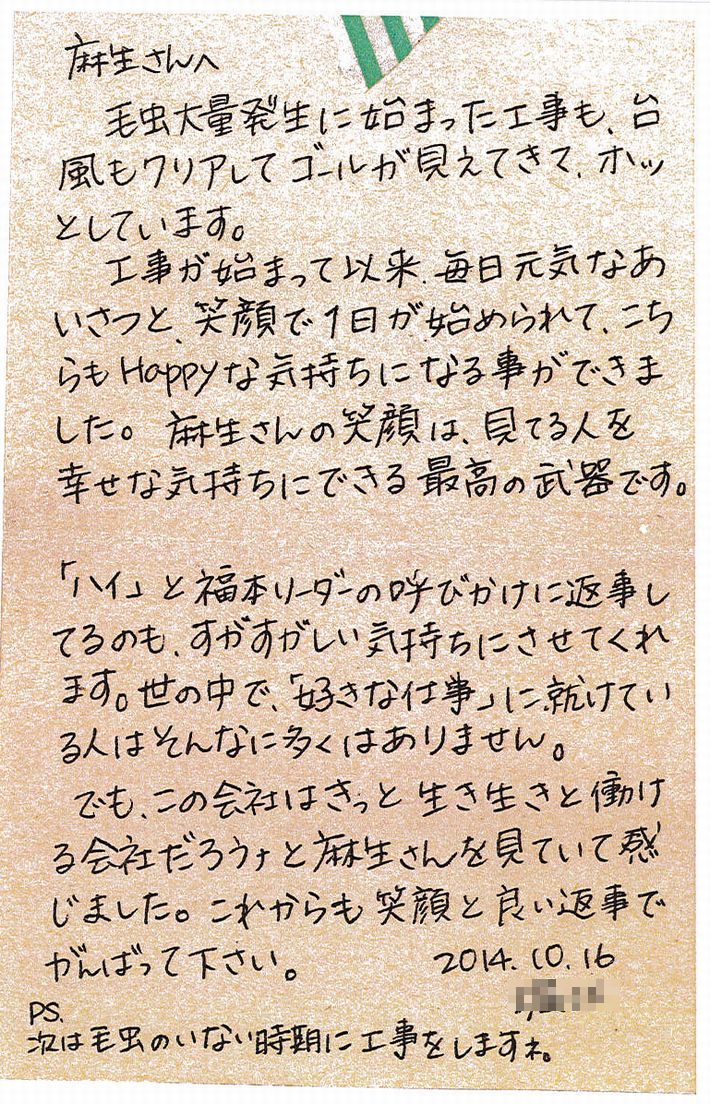 麻生さんへ
毛虫大量発生に始まった工事も、台
風もクリアしてゴールが見えてきて、ホッ
としています。
工事が始まって以来、毎日元気なあ
いさつと、笑顔で1日が始められて、こち
らもHappyな気持ちになる事ができま
した。麻生さんの笑顔は、見てる人を
幸せな気持ちにできる最高の武器です。
「ハイ」と福本リーダーの呼びかけに返事し
てるのも、すがすがしい気持ちにさせてくれ
ます。世の中で、「好きな仕事」に就けてい
る人はそんなに多くはありません。
でも、この会社はきっと生き生きと働け
る会社だろうナと麻生さんを見ていて感
じました。これからも笑顔と良い返事で
がんばって下さい。 2014.10.16
PS.
次は毛虫のいない時期に工事をしますネ。